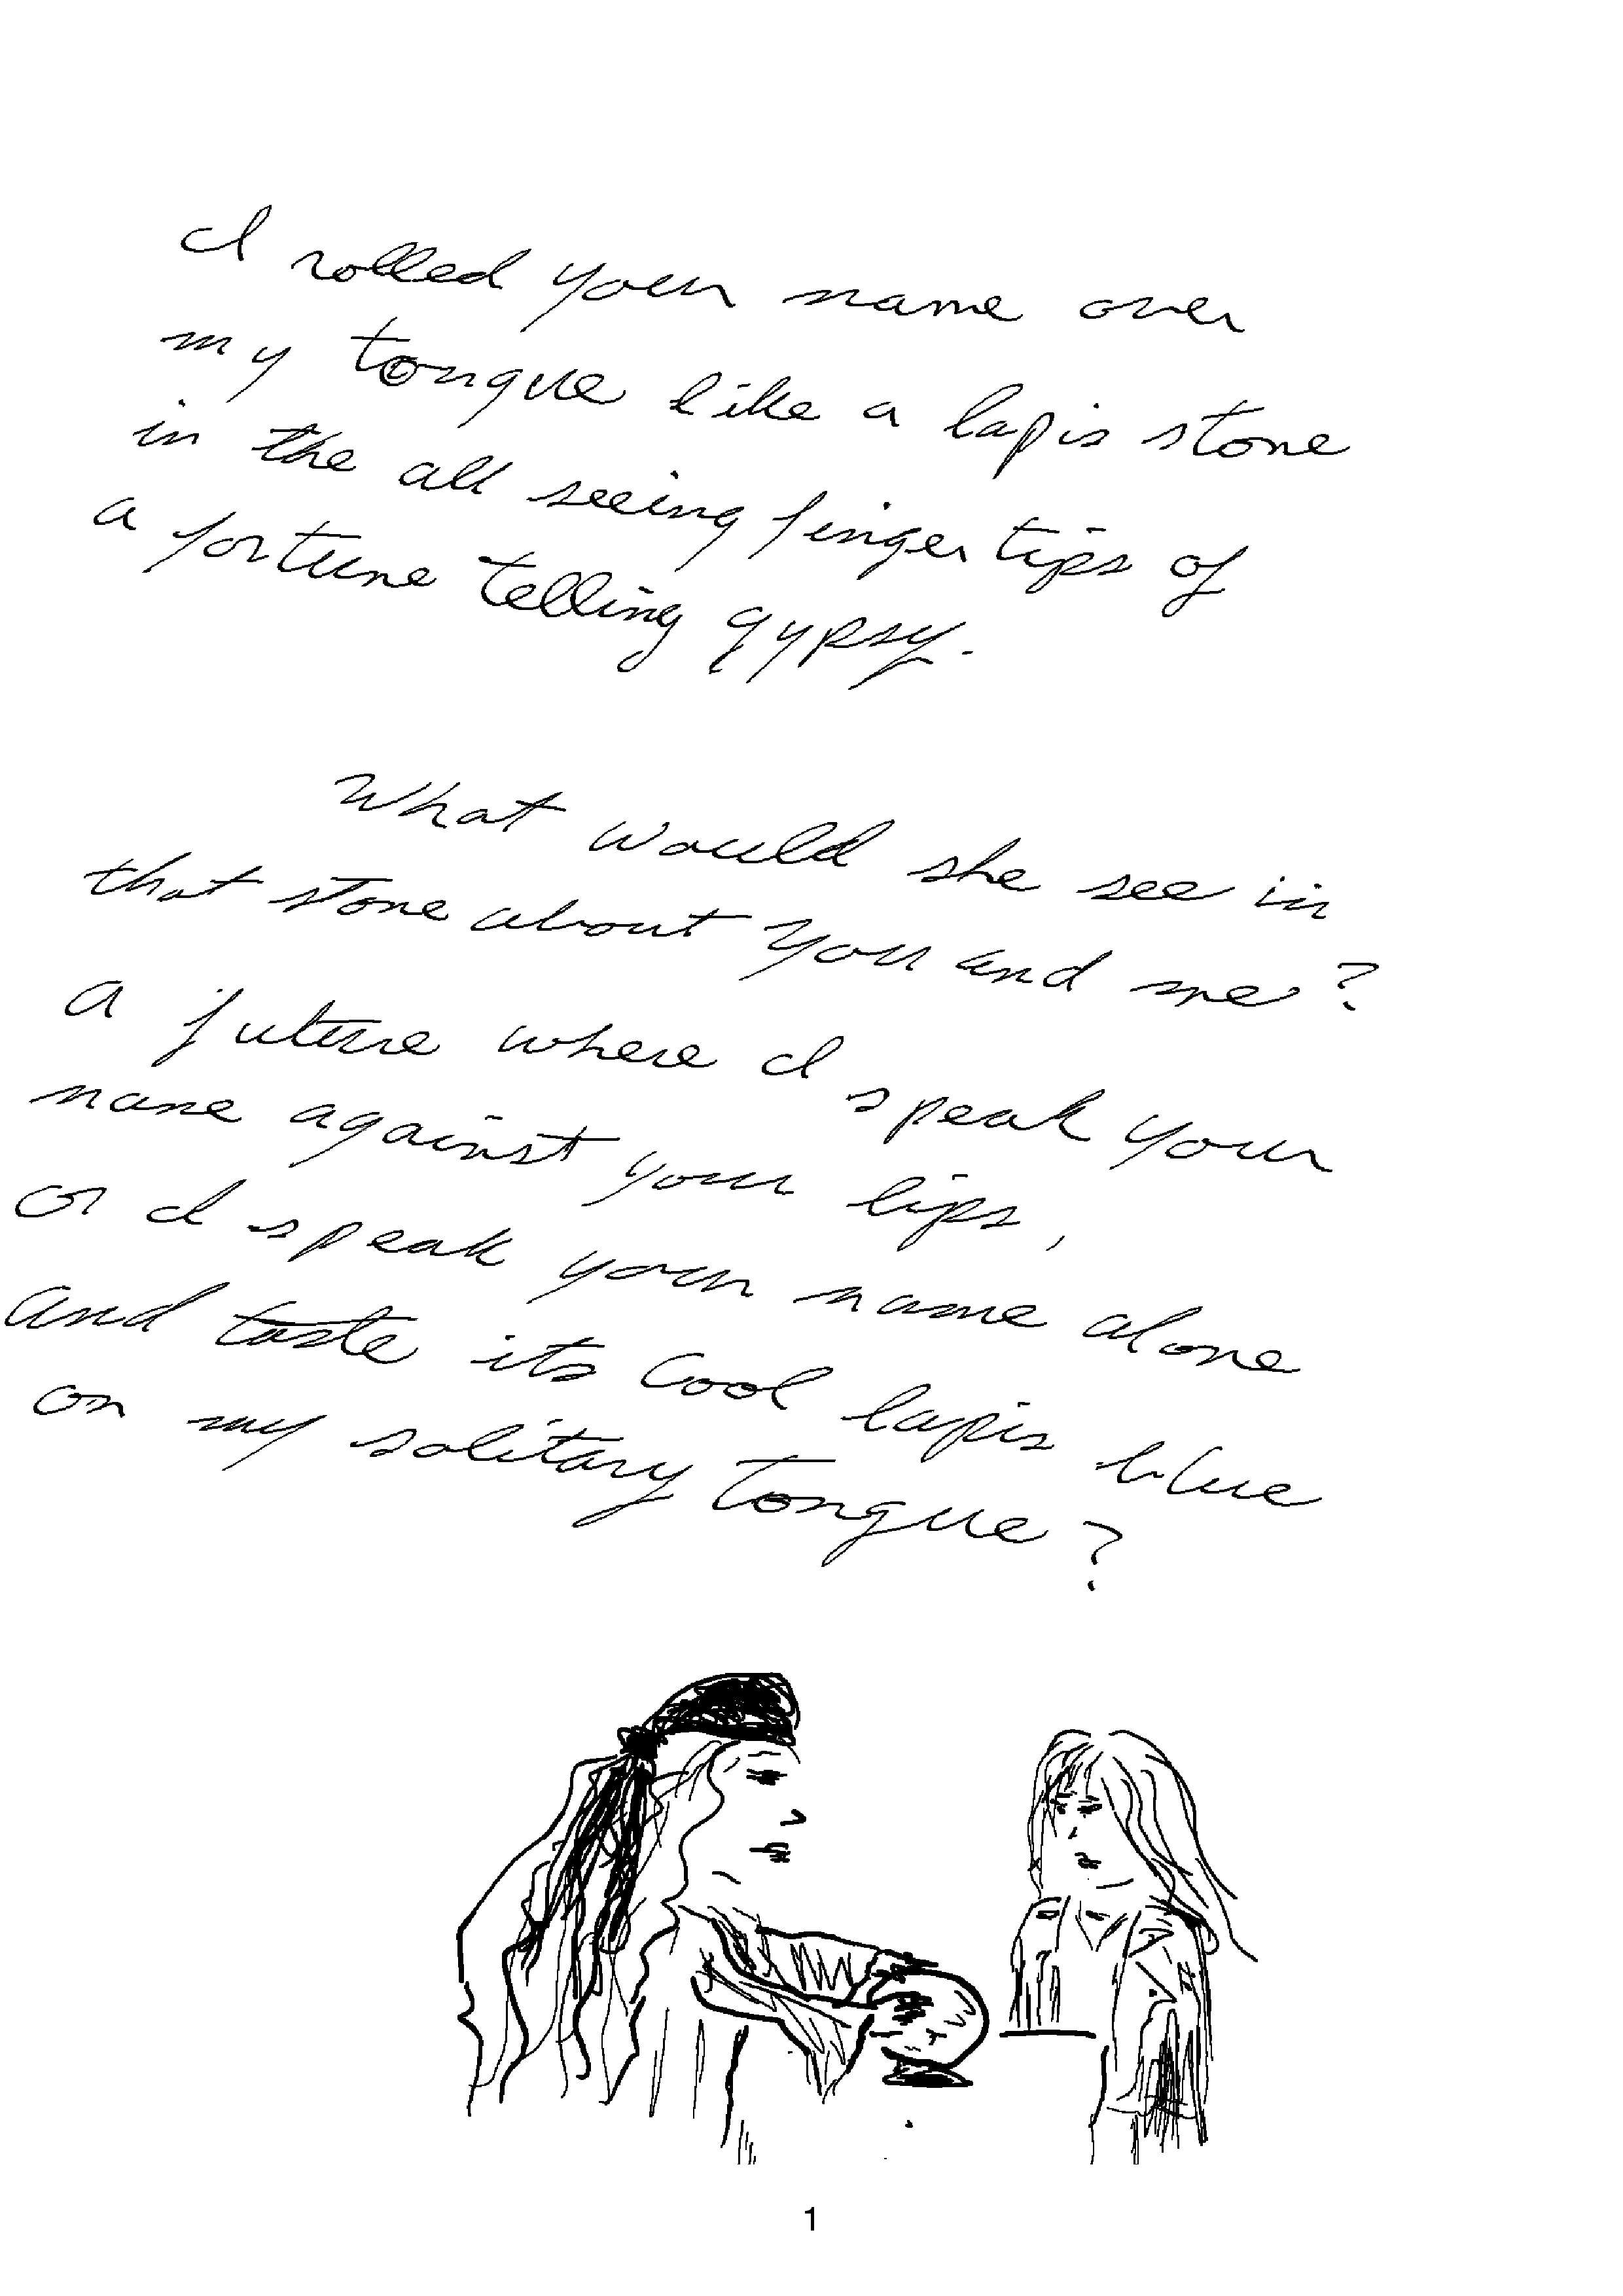 I rolled your name over
my tongue like a lapis stone
in the all seeing fingertips of
a fortune telling gypsy.
What would she see in
that stone about you and me?
a future where I speak your
name against your lips,
or I speak your name alone
and taste its cool lapis blue
on my solitary tongue?
1